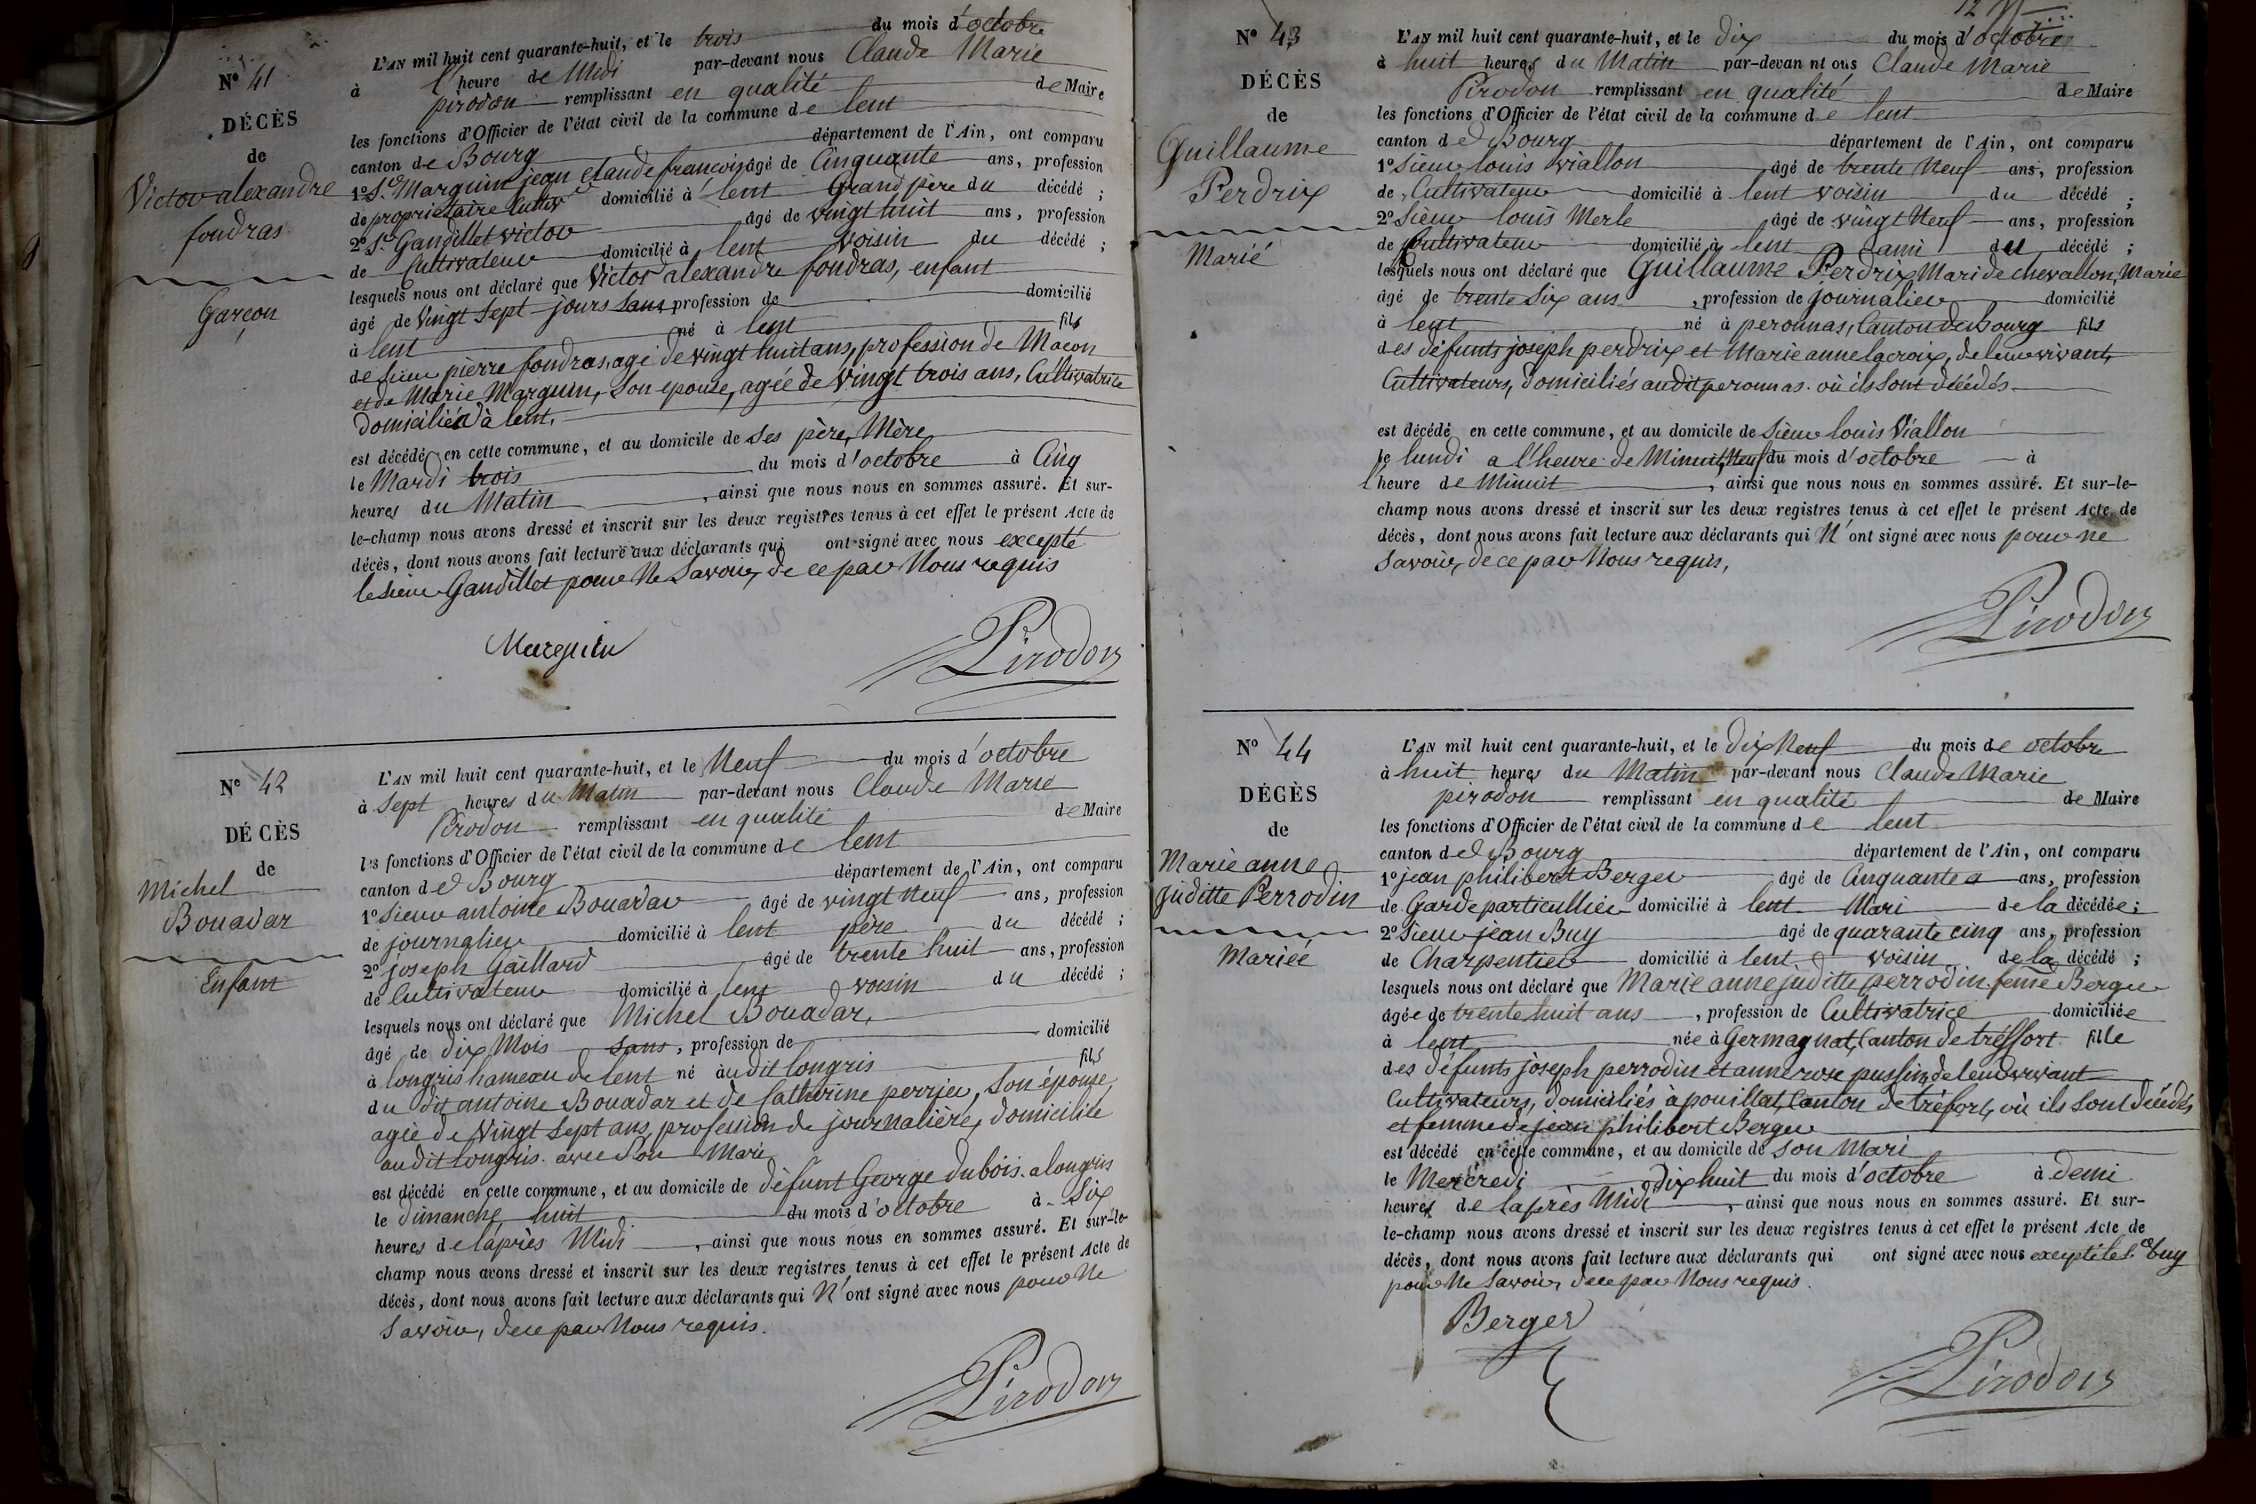 N° 41
DÉCÈS
de
Victor alexandre
fondras
Garçon
L'AN mil huit cent quarante-huit, et le trois du mois d'octobre
à l'heure de Midi par-devant nous Claude Marie
pirodon remplissant en qualité de Maire
les fonctions d'Officier de l'état civil de la commune de lent
canton de Bourg département de l'Ain, ont comparu
1° Sr Marguin jean claude francois âgé de Cinquante ans, profession
de propriétaire Cultivr domicilié à lent Grand père du décédé ;
2° Sr Gandillet victor âgé de vingt huit ans, profession
de Cultivateur domicilié à lent voisin du décédé ;
lesquels nous ont déclaré que Victor alexandre fondras, enfant
âgé de Vingt Sept jours Sans profession de domicilié
à lent né à lent fils
de Sieur pierre fondras, agé de vingt huit ans, profession de Macon
et de Marie Marguin, Son epouse, agée de Vingt trois ans, Cultivatrice
domiciliés à lent.
est décédé en cette commune, et au domicile de Ses père, Mère
le Mardi trois du mois d'octobre à Cinq
heures du Matin, ainsi que nous nous en sommes assuré. Et sur-
le-champ nous avons dressé et inscrit sur les deux registres tenus à cet effet le présent Acte de
décès, dont nous avons fait lecture aux déclarants qui ont signé avec nous excepté
le sieur Gandillet pour Ne Savoir, de ce par Nous requis
Marguin Pirodon
N° 42
DÉCÈS
de
Michel
Bouadar
Enfant
L'AN mil huit cent quarante-huit, et le Neuf du mois d'octobre
à Sept heures du Matin par-devant nous Claude Marie
Pirodon remplissant en qualité de Maire
les fonctions d'Officier de l'état civil de la commune de lent
canton de Bourg département de l'Ain, ont comparu
1° Sieur antoine Bouadar âgé de vingt Neuf ans, profession
de journalier domicilié à lent père du décédé ;
2° joseph Gaillard âgé de trente huit ans, profession
de Cultivateur domicilié à lent voisin du décédé ;
lesquels nous ont déclaré que Michel Bouadar,
âgé de dix Mois Sans, profession de domicilié
à longris hameau de lent né audit longris fils
du dit antoine Bouadar et de Catherine perrier, Son épouse,
agée de Vingt Sept ans, profession de journalière, domiciliée
audit longris avec Son Mari
est décédé en cette commune, et au domicile de défunt George dubois a longris
le dimanche huit du mois d'octobre à Six
heures de l'après Midi, ainsi que nous nous en sommes assuré. Et sur-le-
champ nous avons dressé et inscrit sur les deux registres tenus à cet effet le présent Acte de
décès, dont nous avons fait lecture aux déclarants qui N'ont signé avec nous pour Ne
Savoir, de ce par Nous requis.
Pirodon
N° 43
DÉCÈS
de
Guillaume
Perdrix
Marié
L'AN mil huit cent quarante-huit, et le dix du mois d'octobre
à huit heures du Matin par-devan nt ous Claude Marie
Pirodon remplissant en qualité de Maire
les fonctions d'Officier de l'état civil de la commune de lent
canton de Bourg département de l'Ain, ont comparu
1° Sieur louis Viallon âgé de trente Neuf ans, profession
de Cultivateur domicilié à lent voisin du décédé ;
2° Sieur louis Merle âgé de vingt Neuf ans, profession
de Cultivateur domicilié à lent ami du décédé ;
lesquels nous ont déclaré que Guillaume Perdrix Mari de chevallon, Marie
âgé de trente Six ans, profession de journalier domicilié
à lent né à peronnas, Canton de Bourg fils
des défunts joseph perdrix et Marie anne lacroix, de leur vivant,
Cultivateurs, domiciliés audit peronnas. où ils Sont décédés.
est décédé en cette commune, et au domicile de Sieur louis Viallon
le lundi a l'heure de Minuit, Neuf du mois d'octobre à
l'heure de Minuit, ainsi que nous nous en sommes assuré. Et sur-le-
champ nous avons dressé et inscrit sur les deux registres tenus à cet effet le présent Acte de
décès, dont nous avons fait lecture aux déclarants qui N'ont signé avec nous pour ne
Savoir, de ce par Nous requis,
Pirodon
N° 44
DÉCÈS
de
Marie anne
juditte Perrodin
Mariée
L'AN mil huit cent quarante-huit, et le dix Neuf du mois de octobre
à huit heures du Matin par-devant nous Claude Marie
pirodon remplissant en qualité de Maire
les fonctions d'Officier de l'état civil de la commune de lent
canton de Bourg département de l'Ain, ont comparu
1° jean philibert Berger âgé de Cinquante ans, profession
de Garde particullier domicilié à lent Mari de la décédée ;
2° Sieur jean Buy âgé de quarante cinq ans, profession
de Charpentier domicilié à lent voisin de la décédé ;
lesquels nous ont déclaré que Marie anne juditte perrodin feme Berger
âgée de trente huit ans, profession de Cultivatrice domiciliée
à lent née à Germagnat, Canton de tréffort fille
des défunts joseph perrodin et anne rose puslin, de leur vivant
Cultivateurs, domiciliés à pouillat, Canton de tréfort, où ils Sont décédés
et femme de jean philibert Berger
est décédé en cette commune, et au domicile de son Mari
le Mercredi dix huit du mois d'octobre à demi
heures de l'après Midi, ainsi que nous nous en sommes assuré. Et sur-
le-champ nous avons dressé et inscrit sur les deux registres tenus à cet effet le présent Acte de
décès, dont nous avons fait lecture aux déclarants qui ont signé avec nous excepté le Sr buy
pour Ne Savoir, de ce par Nous requis.
Berger
Pirodon